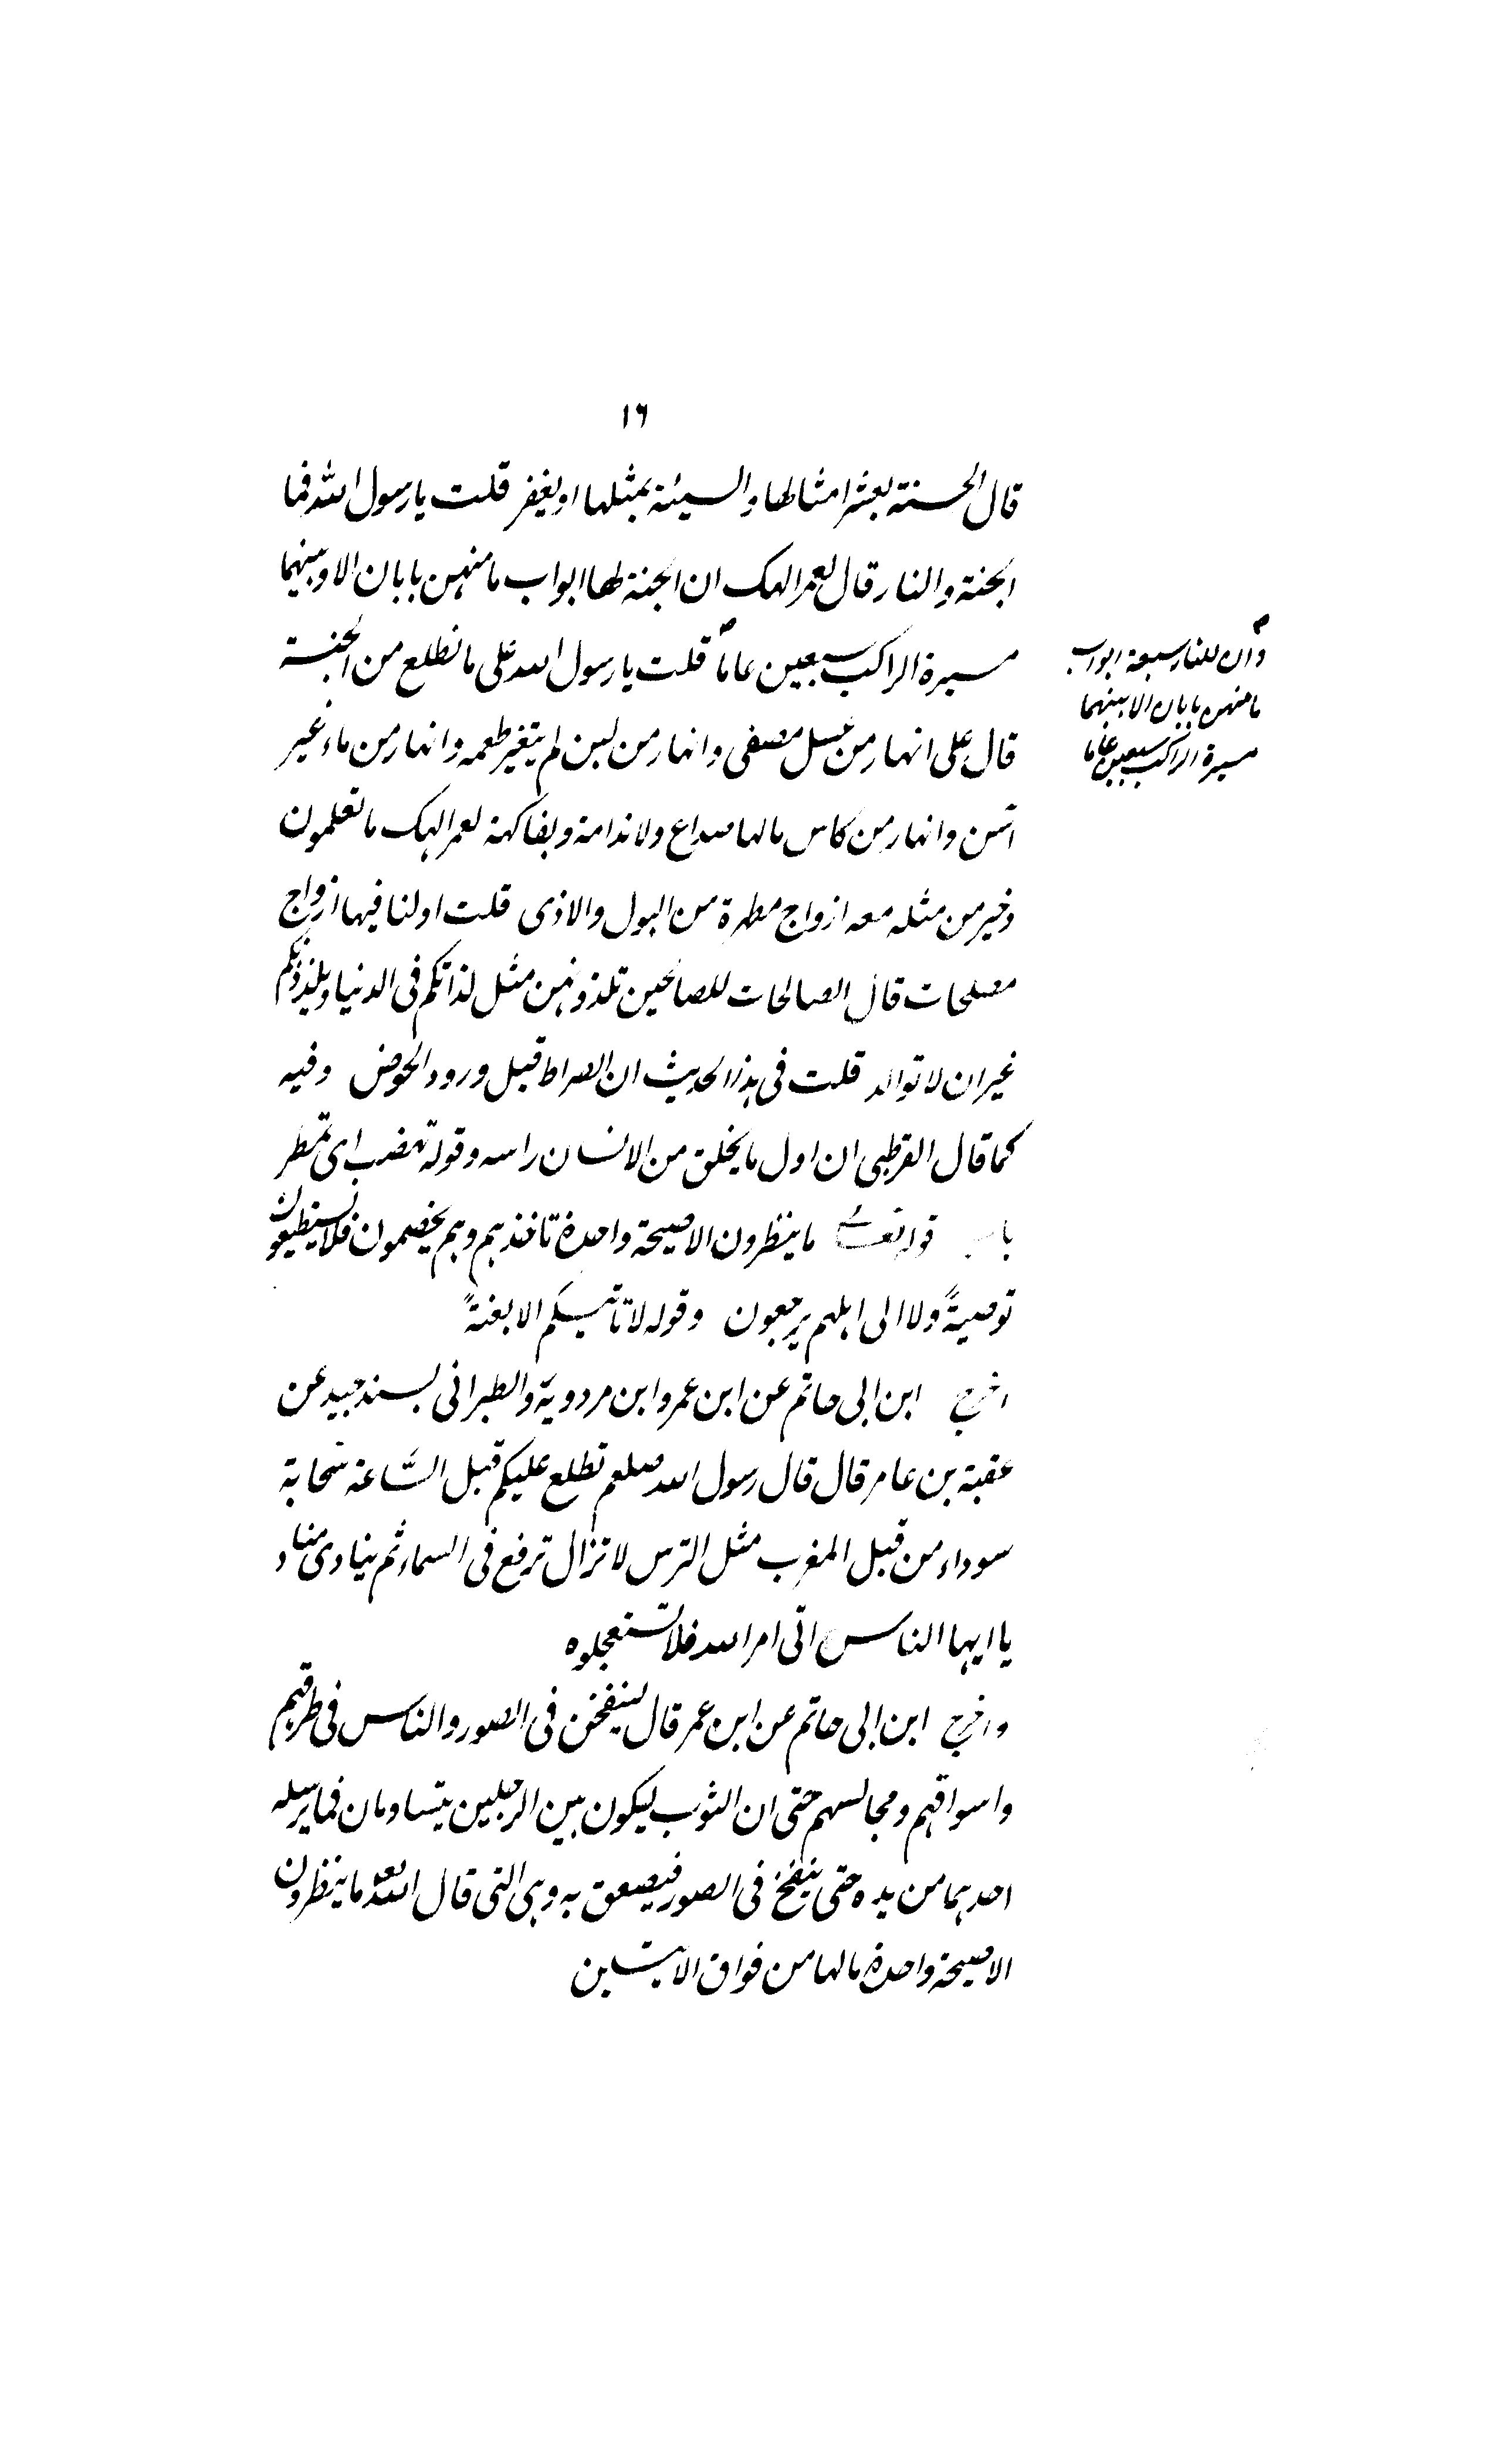 ١٦
قال الحسنة بعشر امثالها والسيئة بمثلها او يغفر قلت يا رسول الله فما
الجنة والنار قال لعمر الهك ان الجنة لها ابواب ما منهن بابان الا وبينهما
مسيرة الراكب سبعين عاما قلت يا رسول الله على ما نطلع من الجنة
قال على انهار من عسل مصفى وانهار من لبن لم يتغير طعمه وانهار من ماء غير
آسن وانهار من كاس مالها صداع ولا ندامة وبفاكهة لعمر الهك ما تعلمون
وخير من مثله معه ازواج مطهرة من البول والاذى قلت اولنا فيها ازواج
مصلحات قال الصالحات للصالحين تلذونهن مثل لذاتكم فى الدنيا ويلذونكم
غير ان لا توالد قلت فى هذا الحديث ان الصراط قبل ورود الحوض وفيه
كما قال القرطبى ان اول ما يخلق من الانسان راسه وقوله تهضب اى تمطر
باب قوله تعالى ما ينظرون الا صيحة واحدة تاخذهم وهم يخصمون فلا يستطيعون
توصيةً ولا الى اهلهم يرجعون وقوله لا تاتيكم الا بغتةً
اخرج ابن ابى حاتم عن ابن عمر وابن مردوية والطبرانى بسند جيد عن
عقبة بن عامر قال قال رسول الله صلعم تطلع عليكم قبل السّاعة سحابة
سوداء من قبل المغرب مثل الترس لا تزال ترفع فى السماء ثم ينادى مناد
يا ايها الناس اتى امر الله فلا تستعجلوه
واخرج ابن ابى حاتم عن ابن عمر قال لينفخن فى الصور والناس فى طرقهم
واسواقهم ومجالسهم حتى ان الثوب ليكون بين الرجلين يتساومان فما يرسله
احدهما من يده حتى ينفخ فى الصور فيصعق به وهى التى قال الله تعه ما ينظرون
الا صيحة واحدة مالها من فواق الايتين
وان للنار سبعة ابواب
ما منهن بابان الا بينهما
مسيرة الراكب سبعين عاما